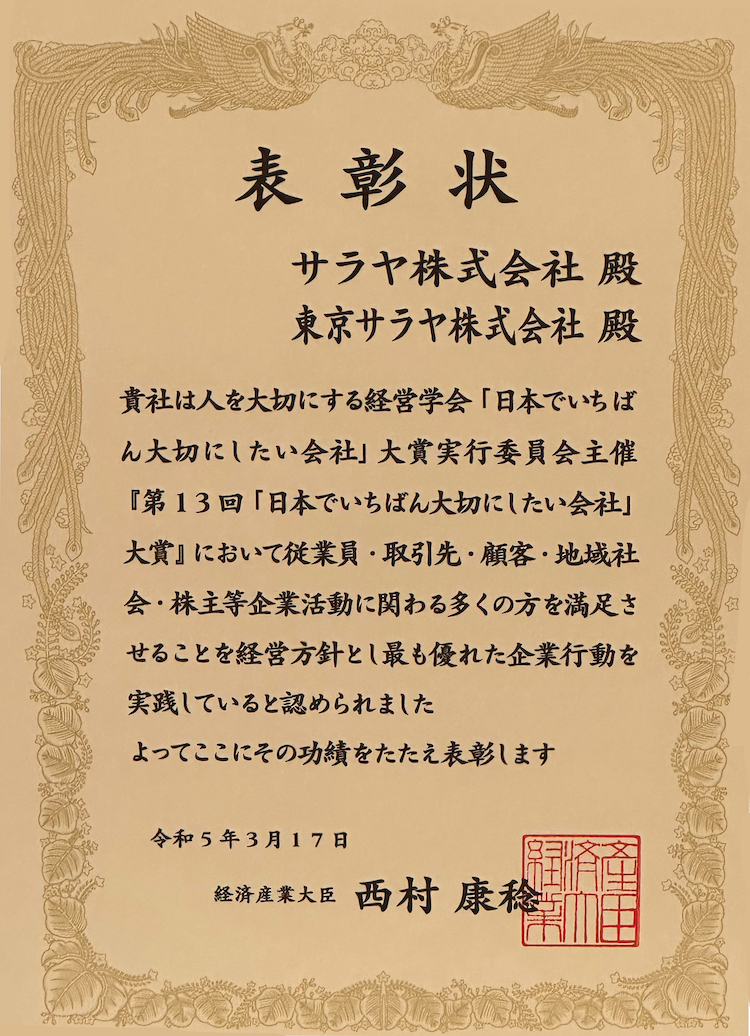 表彰状
サラヤ株式会社 殿
東京サラヤ株式会社 殿
貴社は人を大切にする経営学会「日本でいちば
ん大切にしたい会社」大賞実行委員会主催
『第13回「日本でいちばん大切にしたい会社」
大賞』において従業員・取引先・顧客・地域社
会・株主等企業活動に関わる多くの方を満足さ
せることを経営方針とし最も優れた企業行動を
実践していると認められました
よってここにその功績をたたえ表彰します
令和5年3月17日
経済産業大臣 西村 康稔